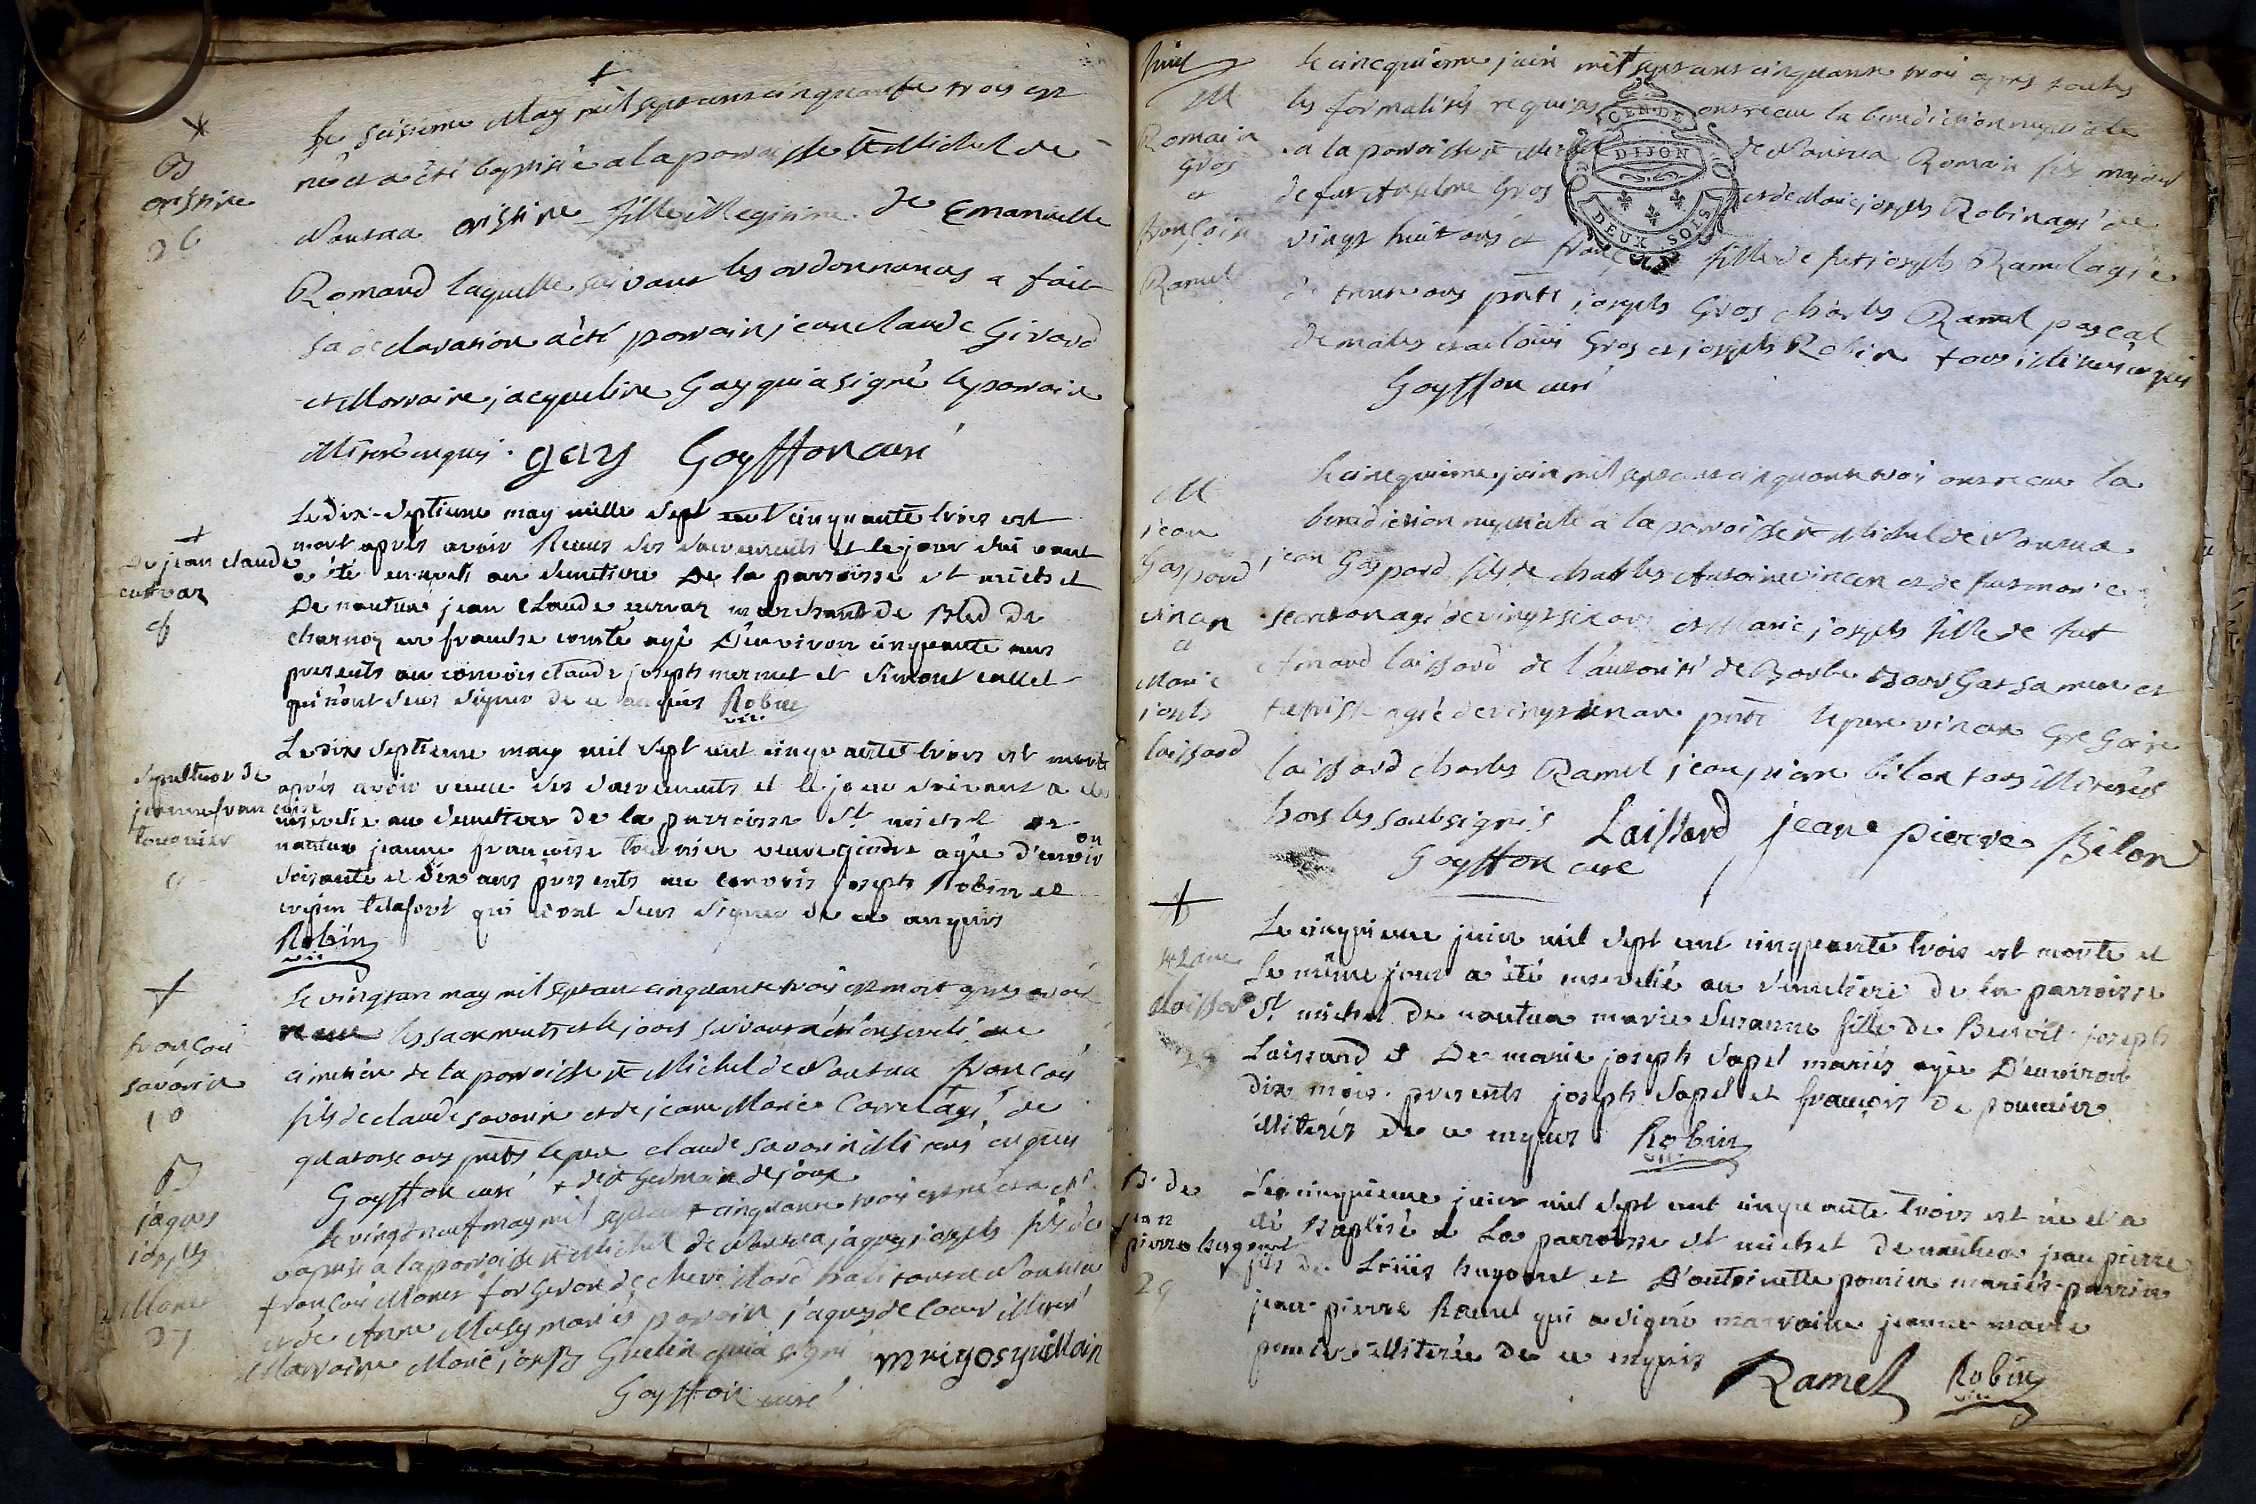 B
le seisieme May mil sept cent cinquante trois est
né et a été baptisé a la paroisse St Michel de
Nantua fille illegitime de Emanuelle
Romand laquelle suivant les ordonnances a fait
sa declaration a été parrain jean claude Girard
et Marraine jacqueline Gay qui a signé le parrain
illiteré enquis. gay Goyffon curé
De jean claude
curvar
Le dix-septieme may mille sept cent cinquante trois est
mort apres avoir Reçus ses sacrements et le jour suivant
a été enseveli au semetiere De la parroisse st michel
De nantua jean claude curvar marchand de Bled de
charnoz en franche comté agé D'environ cinquante ans
presents au convois claude joseph mermet et
qui n'ont sçus signer de ce enquis Robin
vic.
sepulture de
jeanne francoise
tournier
Le dix septieme may mil sept cent cinquante trois est morte
après avoir reçue ses sacrements et le jour suivant a été
ensevelie au semetiere de la parroisse st michel de
nantua jeanne françoise tournier veuve agée d'environ
soixante et dix ans présents au convois joseph Robin et
qui n'ont sçus signer de ce enquis
Robin
vic
françois
savarin
10
le vingt may mil sept cent cinquante trois est mort apres avoir
reçu les sacrements et le jour suivant a été enseveli au
cimetiere de la paroisse St Michel de Nantua françois
fils de claude savarin et de jeane Marie Carrel agé de
quatorse ans pnts le pere claude savarin illiteré enquis
Goyffon curé + de St Germain de joux
B
jaques
joseph
Monet
27
le vingt neuf may mil sept cent cinquante trois est né et a été
baptisé a la paroisse St Michel de Nantua jaques joseph fils de
françois Monet forgeron de habitant a Nantua
et de Anne Musy mariés parrain jaques de Cour illiteré
Marraine Marie joseph qui a signé
Goyffon curé
Juin
M
Romain
Gros
et
françoise
Ramel
le cinequième juin mil sept cent cinquante trois apres toutes
les formalités requises ont reçu la benediction nuptiale
a la paroisse St Michel de Nantua Romain fils majeur
de fut Anselme Gros et de Marie joseph Robin agé de
vingt huit ans et françoise fille de fut joseph Ramel agée
de trente ans pnts joseph Gros charles Ramel pascal
Gros et joseph Robin tous illiterés enquis
Goyffon curé
CEN. DE
DIJON
DEUX SOLS
M
jean
Gaspard
vincen
et
Marie
joseph
laissard
le cinequième juin mil sept cent cinquante trois ont reçu la
benediction nuptiale a la paroisse St Michel de Nantua
jean Gaspard fils de charles Antoine vincen et de fut marie
agé de vingt six ans et Marie joseph fille de fut
Aimard laissard de l'autorité de sa mere et
tutrisse agée de vingt un an pnts le pere vincen
laissard charles Ramel jean pierre bilon tous illiterés
hors les soubsignés Laissard jean pierre Bilon
Goyffon curé
Le cinquieme juin mil sept cent cinquante trois est morte et
Le même jour a été ensevelie au semetiere de la parroisse
St michel De nantua marie susanne fille de Benoît joseph
Laissard et De marie joseph sapel mariés agée D'environ
dix mois. presents joseph sapel et françois
illiterés de ce enquis Robin
vic.
B. de
jean
pierre hugonet
29
Le cinquieme juin mil sept cent cinquante trois est né et a
été Baptisé a La parroisse st michel de nantua jean pierre
fils de Loüis hugonet et D'antoinette mariés parrin
jean pierre Ramel qui a signé marraine jeanne marie
illiterée de ce enquis
Ramel Robin
vic.